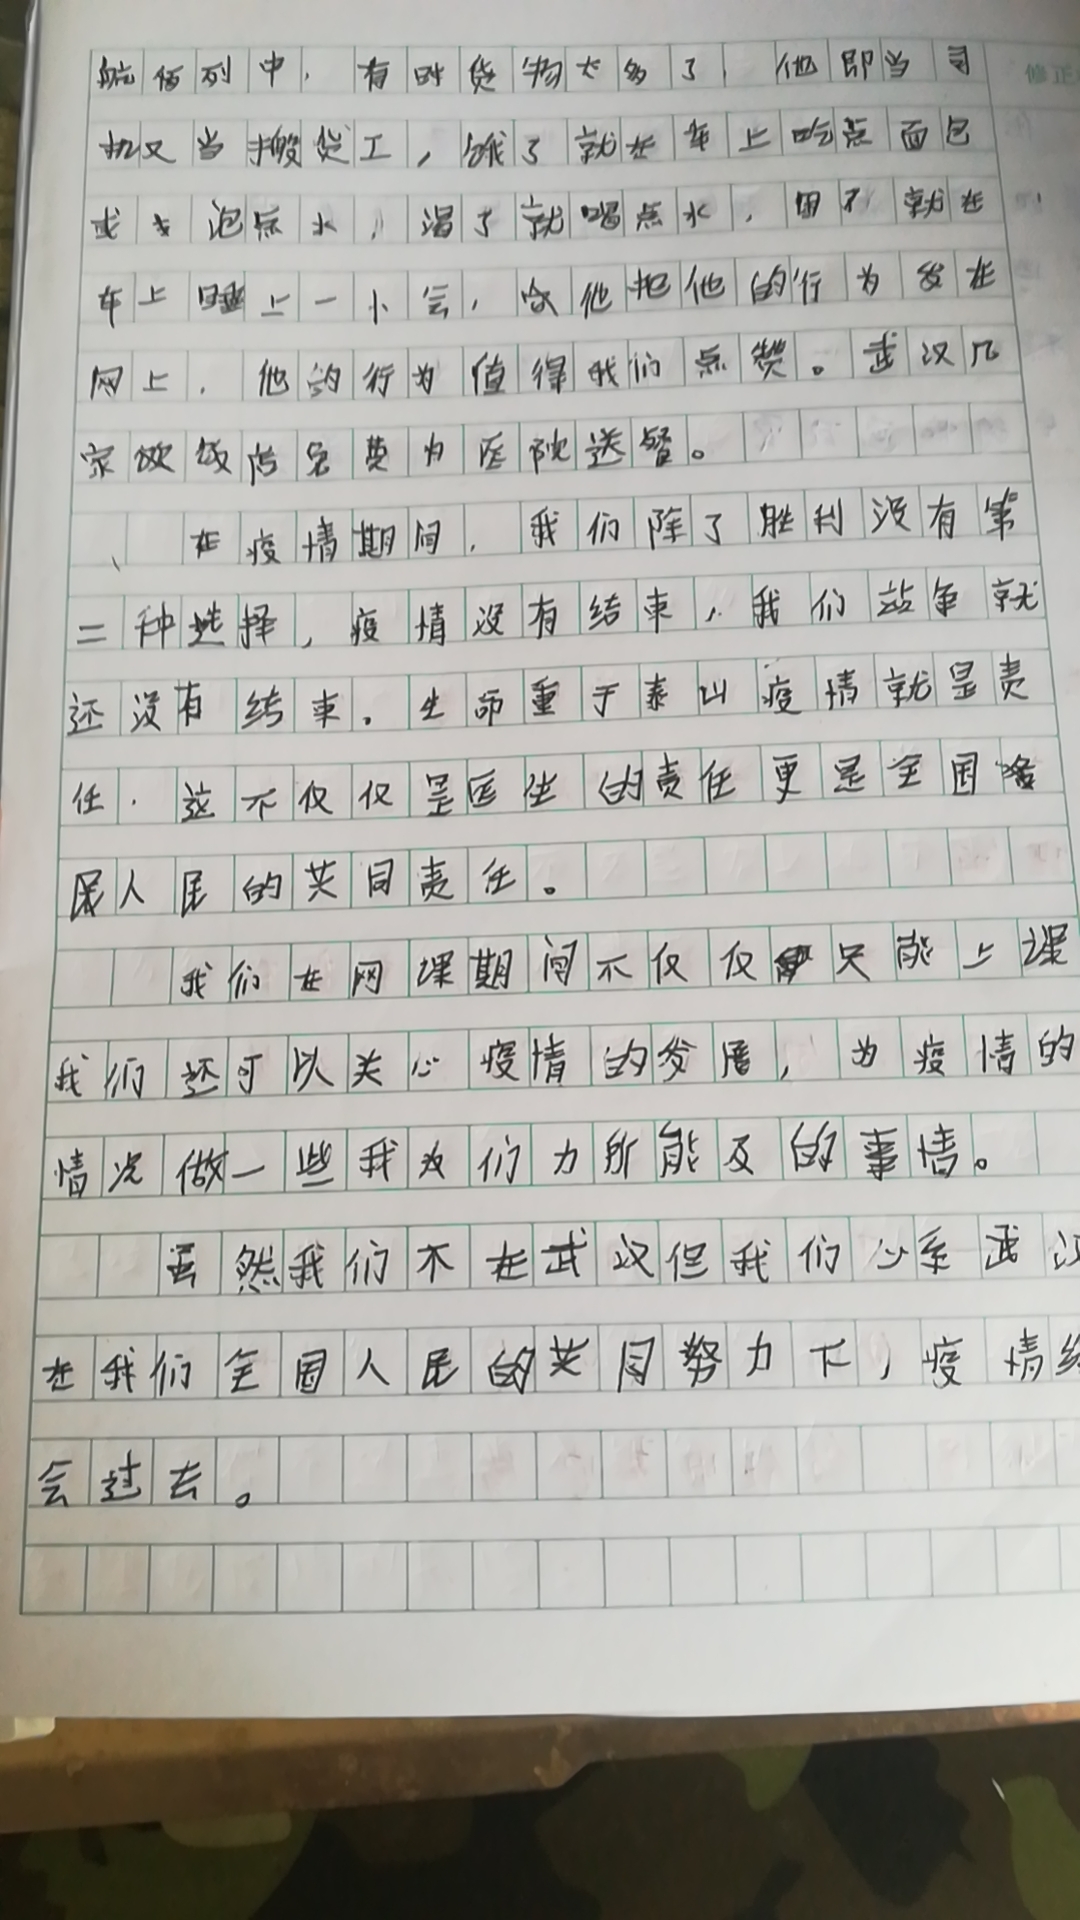 航行列中，有时货物太多了，他即当司
机又当搬货工，饿了就在车上吃点面包
或去泡点水，渴了就喝点水，困了就在
车上睡上一小会，他把他的行为发在
网上，他的行为值得我们点赞。武汉几
家饮饭店免费为医院送餐。
在疫情期间，我们除了胜利没有第
二种选择，疫情没有结束，我们战争就
还没有结束。生命重于泰山疫情就是责
任，这不仅仅是医生的责任更是全国
人民的共同责任。
我们在网课期间不仅仅只能上课
我们还可以关心疫情的发展，为疫情的
情况做一些我为们力所能及的事情。
虽然我们不在武汉但我们心系武汉
在我们全国人民的共同努力下，疫情终
会过去。
修正